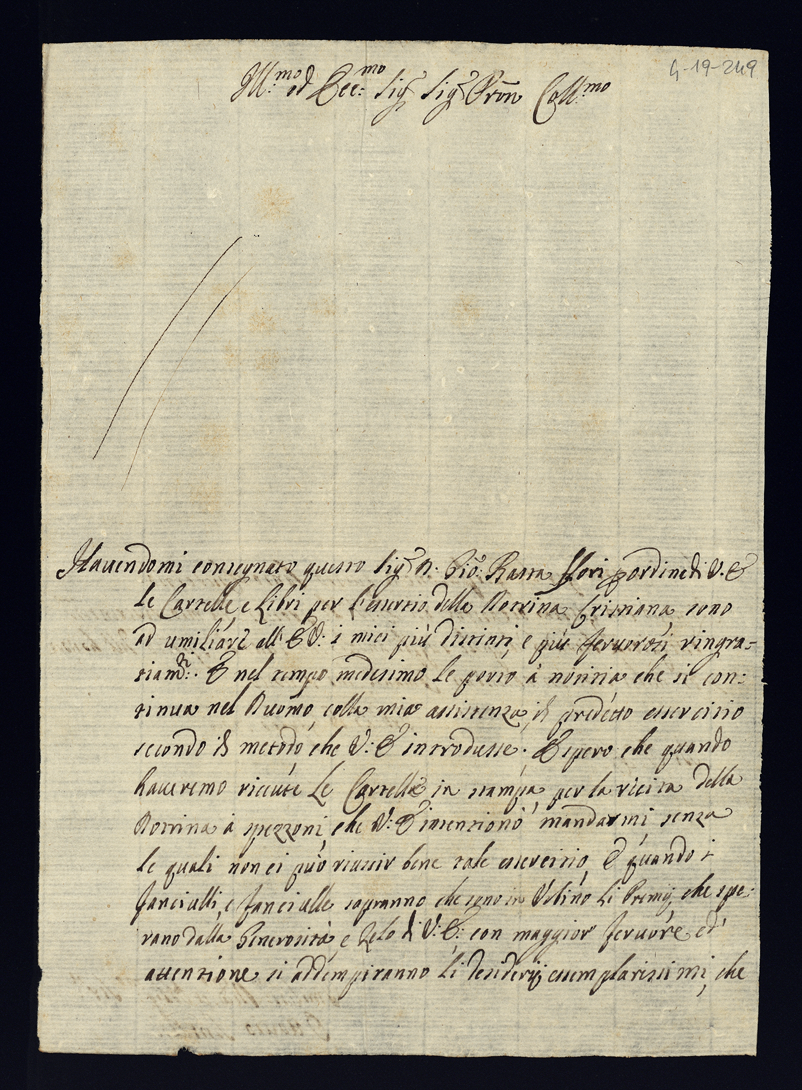 G-19-249
Ill:mo ed Ecc:mo Sig.r Sig.r Pron Coll:mo
Havendomi consegnato questo Sig.r D. Gio. Batta p ordine di V. E
le Cartelle e Libri per l'esercitio della Dottrina Cristiana sono
ad umiliare all' E V: i miei più distinti, e più fervorosi ringra-
tiam.ti: E nel tempo medesimo le porto à notitia che si con:
tinua nel Duomo, colla mia assistenza, il predetto essercitio
secondo il metodo, che V: E introdusse. E spero che quando
haveremo ricevute le Cartelle in stampa per la recita della
Dottrina à pezzoni, che V: E intentionò mandarmi, senza
le quali non ci può riuscir bene tale essercitio, E quando i
fanciulli, e fanciulle sapranno che sono in Urbino li Premij, che spe:
rano dalla Generosità e Zelo di V: E: con maggior fervore ed
attentione si addempiranno li desiderij essemplarissimi, che